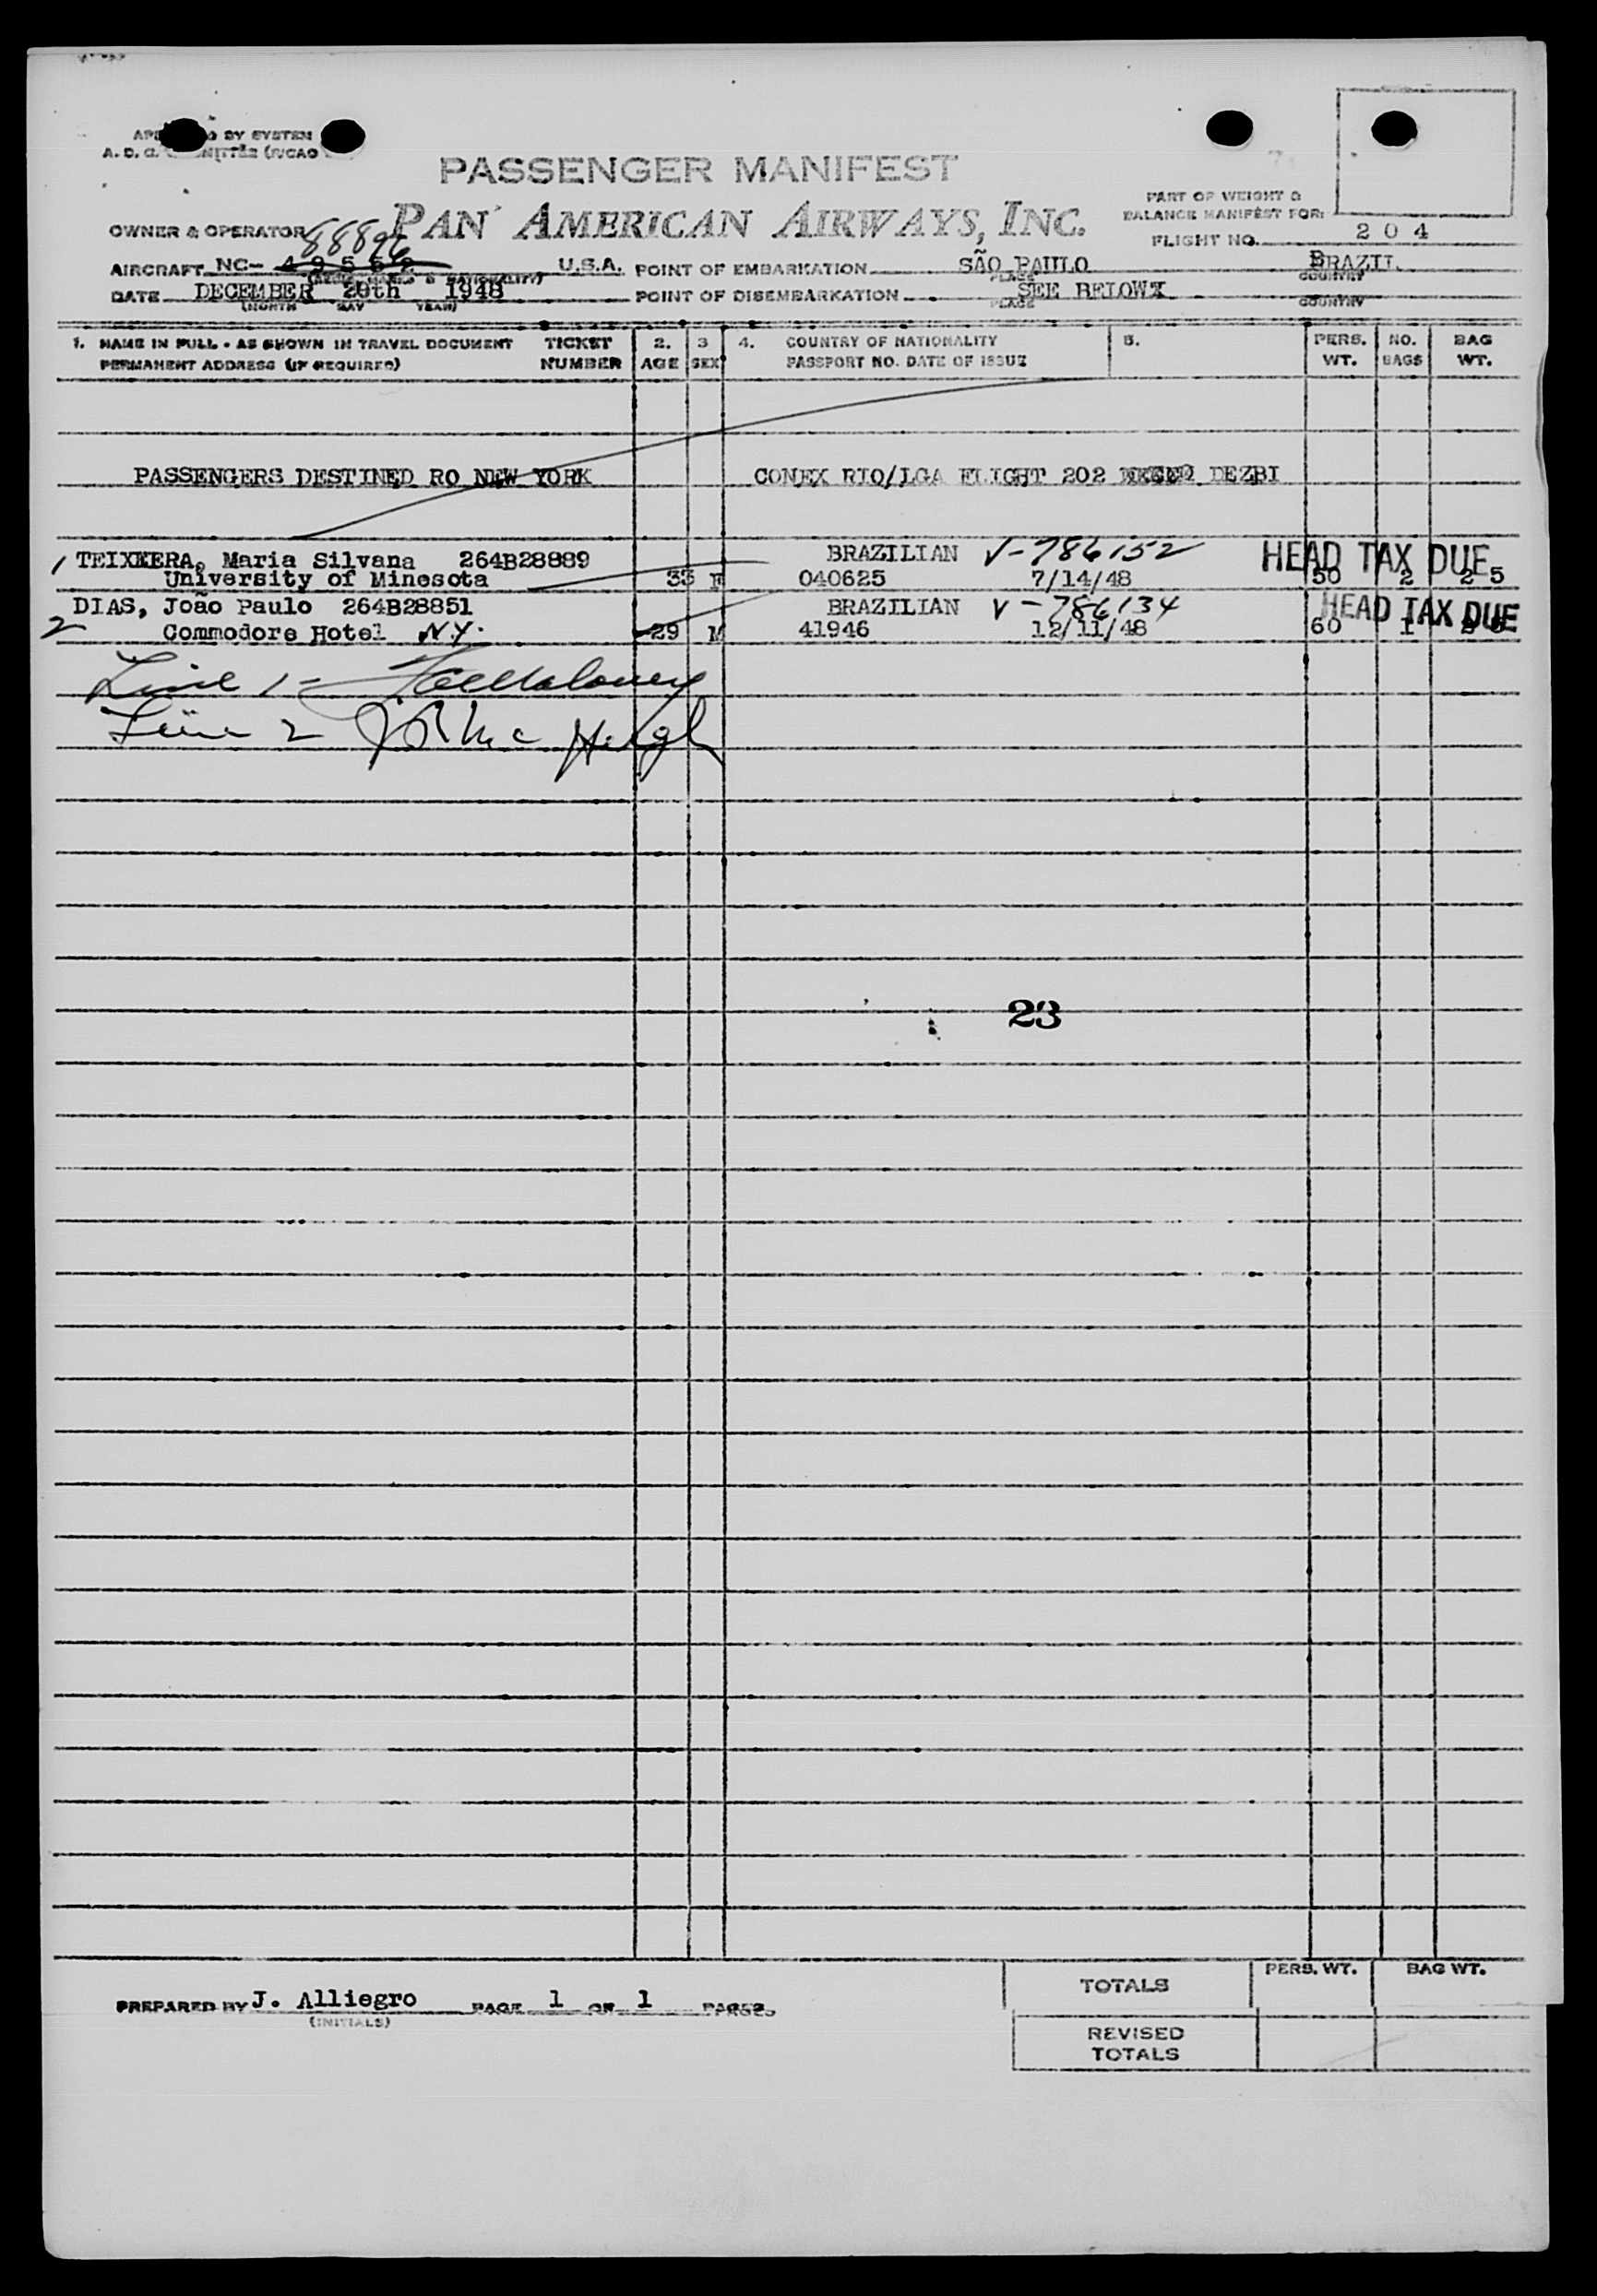 PASSENGER MANIFEST
OWNER & OPERATOR PAN AMERICAN AIRWAYS, INC.
PART OF WEIGHT &
BALANCE MANIFEST FOR:
FLIGHT NO. 2 0 4
88896
AIRCRAFT NC- 49562 U.S.A. POINT OF EMBARKATION SÃO PAULO BRAZIL
PLACE COUNTRY
DATE DECEMBER 20th 1948 POINT OF DISEMBARKATION SEE BELOW
(MONTH DAY YEAR) PLACE COUNTRY
1. NAME IN FULL - AS SHOWN IN TRAVEL DOCUMENT TICKET 2. 3 4. COUNTRY OF NATIONALITY 5. PERS. NO. BAG
PERMANENT ADDRESS (IF REQUIRED) NUMBER AGE SEX PASSPORT NO. DATE OF ISSUE WT. BAGS WT.
PASSENGERS DESTINED RO NEW YORK CONEX RIO/LGA FLIGHT 202 DEZBI
1 TEIXEERA, Maria Silvana 264B28889 BRAZILIAN V-786152 HEAD TAX DUE
University of Minesota 33 F 040625 7/14/48 50 2 25
DIAS, João Paulo 264B28851 BRAZILIAN V-786134 HEAD TAX DUE
2 Commodore Hotel N.Y. 29 M 41946 12/11/48 60 1
Line 1-
Line 2
23
TOTALS PERS. WT. BAG WT.
PREPARED BY J. Alliegro PAGE 1 OF 1 PAGES
(INITIALS)
REVISED
TOTALS